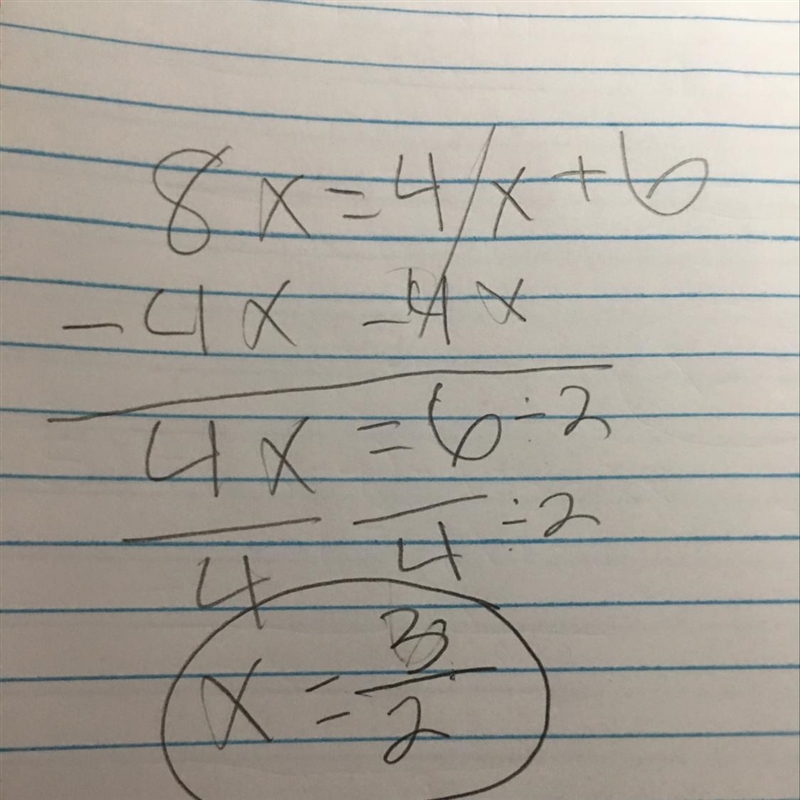 8x = 4x + 6
-4x -4x
4x = 6 ÷ 2
4 4 ÷ 2
x = 3/2